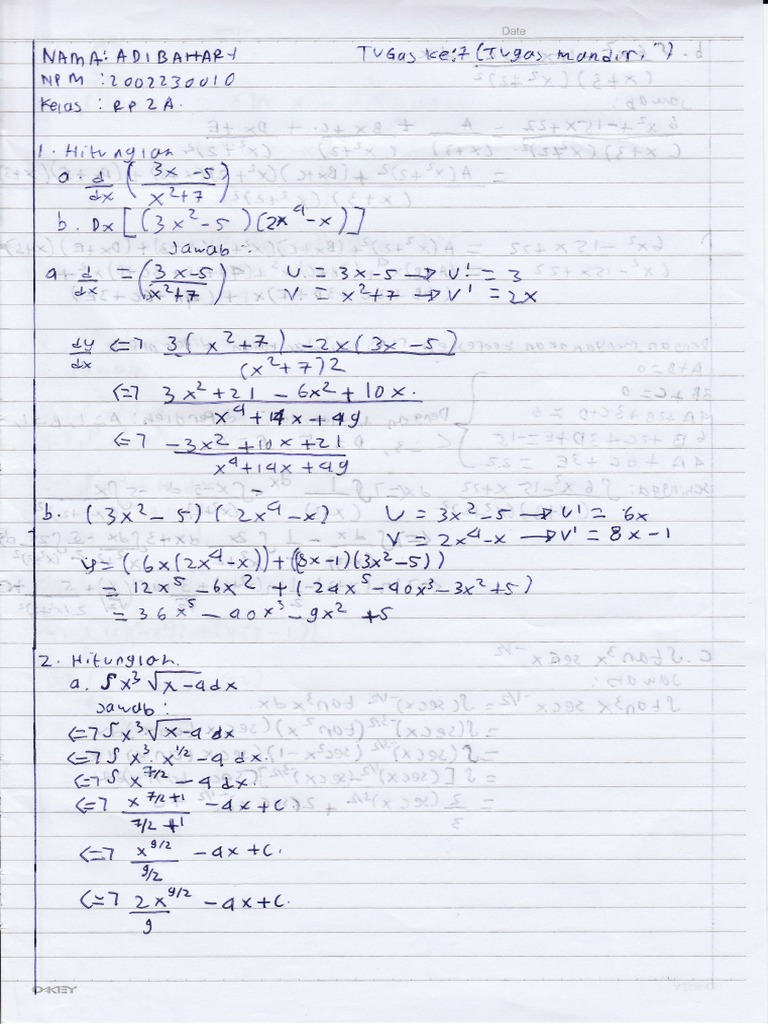 Date
NAMA: ADI BAHARI TUGas ke:7 (TUgas mandiri)
NPM : 2002230010
Kelas : RP 2 A.
1. Hitunglah
a. d/dx ((3x-5)/(x²+7))
b. Dx [(3x²-5)(2x⁴-x)]
Jawab:
a d/dx = ((3x-5)/(x²+7)) U = 3x-5 → U' = 3
V = x²+7 → V' = 2x
dy/dx <=> (3(x²+7) -2x(3x-5))/((x²+7)2)
<=> (3x²+21 - 6x²+10x.)/(x⁴+14x+49)
<=> (-3x²+10x+21)/(x⁴+14x+49)
b. (3x²-5)(2x⁴-x) U = 3x²-5 → U' = 6x
V = 2x⁴-x → V' = 8x-1
y = (6x(2x⁴-x))+(8x-1)(3x²-5))
= 12x⁵ -6x² + (24x⁵-40x³-3x²+5)
= 36x⁵ - 40x³ -9x² +5
2. Hitunglah.
a. ∫x³ √x-4 dx
Jawab:
<=> ∫x³ √x-4 dx
<=> ∫ x³. x^1/2 -4 dx.
<=> ∫ x^7/2 -4 dx.
<=> (x^7/2+1)/(7/2+1) -4x+C.
<=> (x^9/2)/(9/2) -4x+C.
<=> (2x^9/2)/9 -4x+C.
OAKEY